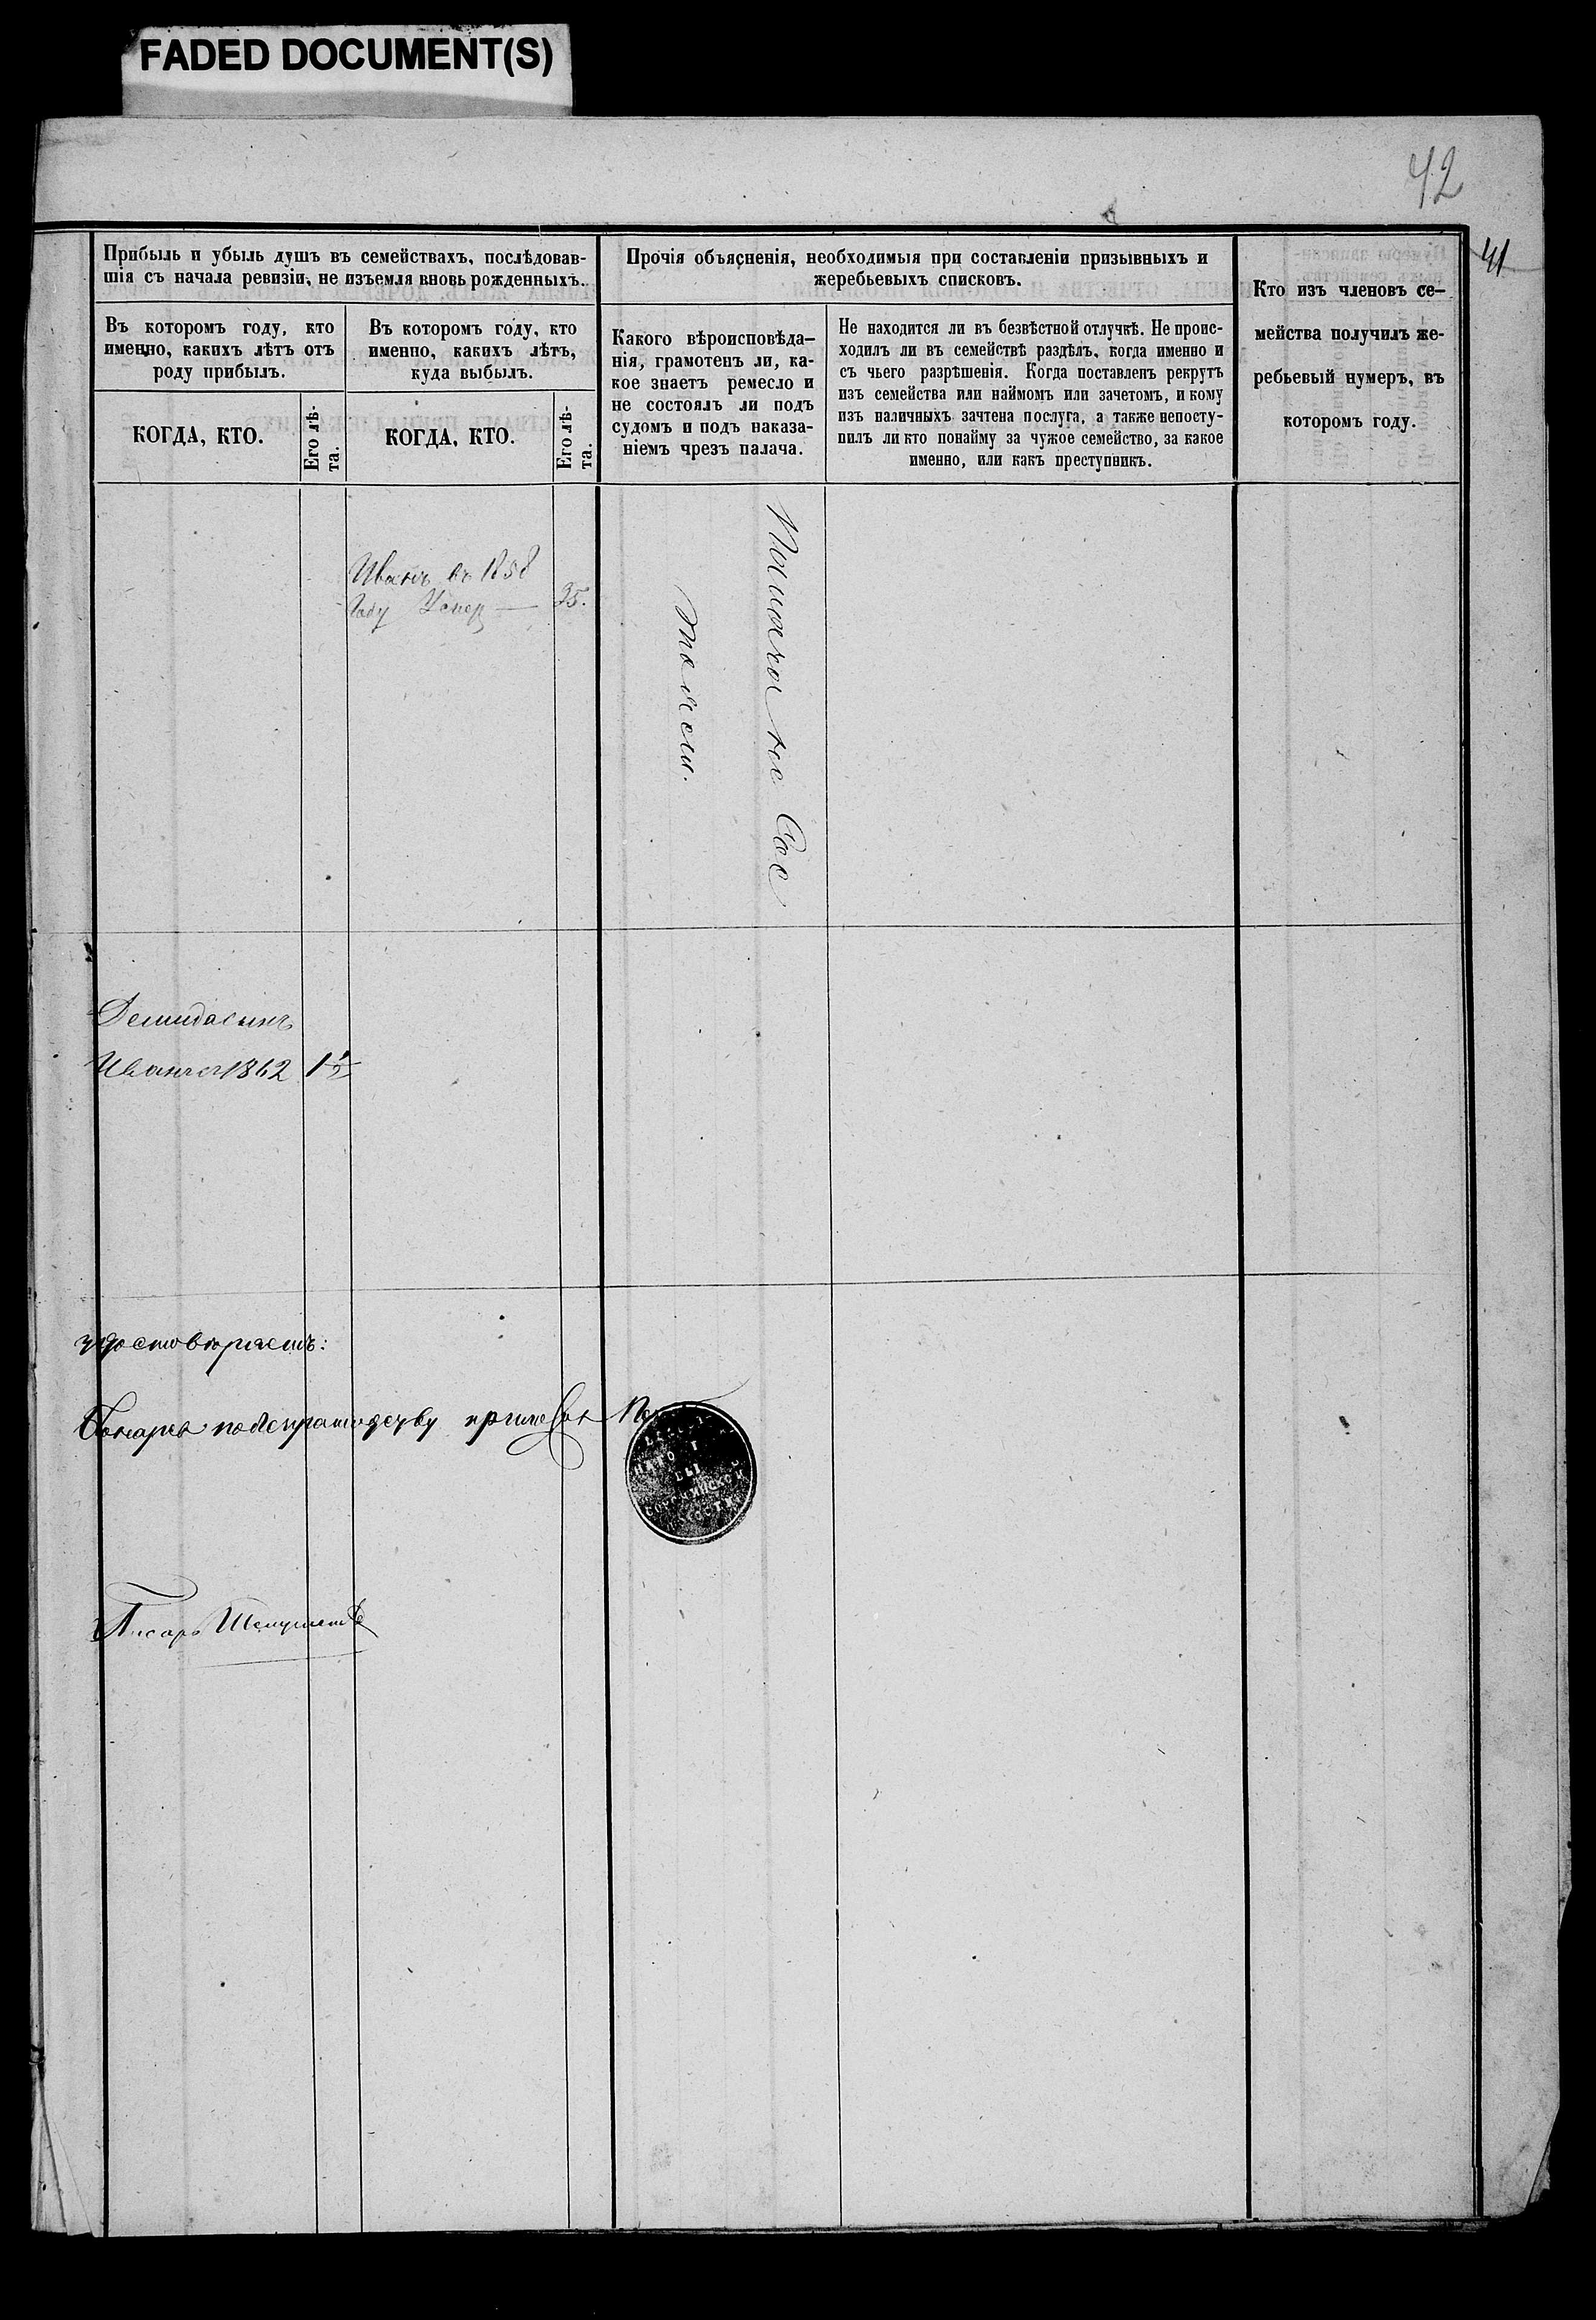 FADED DOCUMENT(S)
42
41
Прибыль и убыль душъ въ семействахъ, послѣдовав-
шія съ начала ревизіи, не изъемля вновь рожденныхъ.
Въ которомъ году, кто
именно, какихъ лѣтъ отъ
роду прибылъ.
КОГДА, КТО.
Его лѣ-
та.
Въ которомъ году, кто
именно, какихъ лѣтъ,
куда выбылъ.
КОГДА, КТО.
Его лѣ-
та.
Прочія объясненія, необходимыя при составленіи призывныхъ и
жеребьевыхъ списковъ.
Какого вѣроисповѣда-
нія, грамотенъ ли, ка-
кое знаетъ ремесло и
не состоялъ ли подъ
судомъ и подъ наказа-
ніемъ чрезъ палача.
Не находится ли въ безвѣстной отлучкѣ. Не проис-
ходилъ ли въ семействѣ раздѣлъ, когда именно и
съ чьего разрѣшенія. Когда поставленъ рекрутъ
изъ семейства или наймомъ или зачетомъ, и кому
изъ наличныхъ зачтена послуга, а также непосту-
пилъ ли кто понайму за чужое семейство, за какое
именно, или какъ преступникъ.
Кто изъ членовъ се-
мейства получилъ же-
ребьевый нумеръ, въ
которомъ году.
Иванъ въ 1858
году Умер — 35.
Демида сынъ
Иванъ 1862 1½
удостовѣряемъ:
Писарь